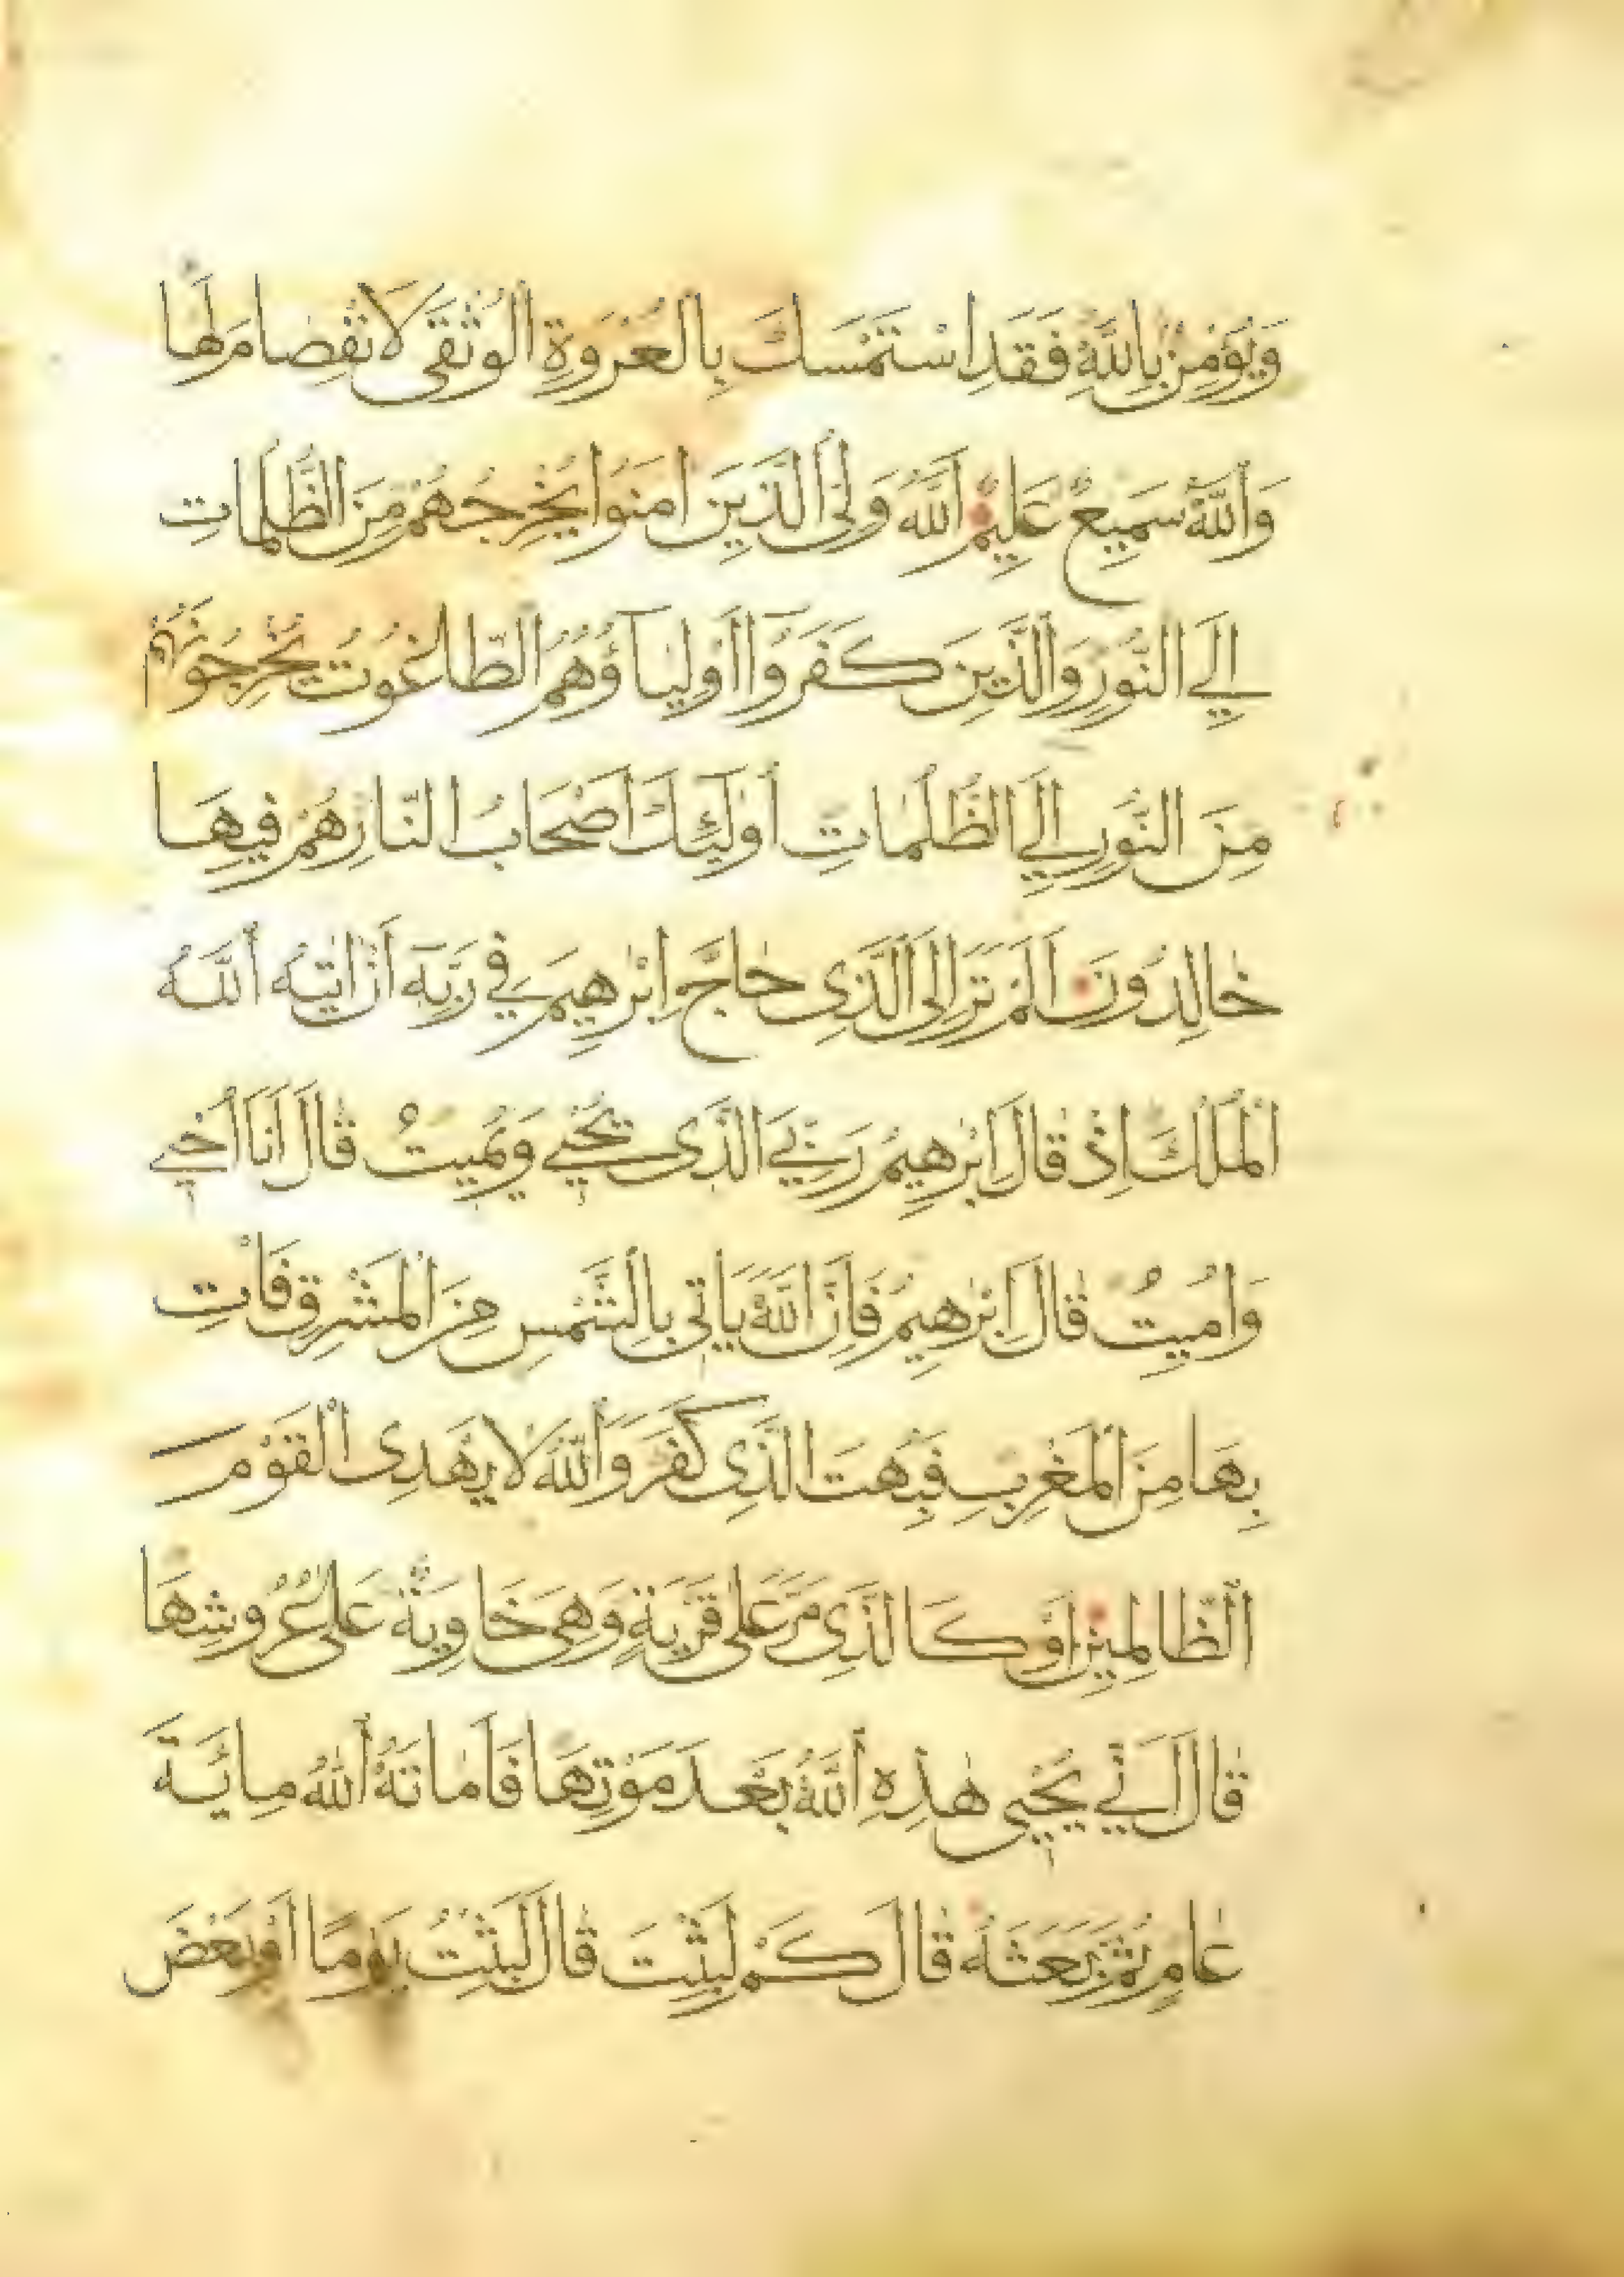 وَيُؤْمِنْ بِاللَّهِ فَقَدِ اسْتَمْسَكَ بِالْعُرْوَةِ الْوُثْقَى لَا نْفِصَامَ لَهَا
وَاللَّهُ سَمِيعٌ عَلِيمٌ اللَّهُ وَلِيُّ الَّذِينَ اٰمَنُوا يُخْرِجُهُمْ مِنَ الظُّلُمَاتِ
اِلَى النُّورِ وَالَّذِينَ كَفَرُوا اَوْلِيَآؤُهُمُ الطَّاغُوتُ يُخْرِجُونَهُمْ
مِنَ النُّورِ اِلَى الظُّلُمَاتِ اُولٰئِكَ اَصْحَابُ النَّارِ هُمْ فِيهَا
خَالِدُونَ اَلَمْ تَرَ اِلَى الَّذِى حَاجَّ اِبْرٰهِيمَ فِي رَبِّهٓ اَنْ اٰتٰيهُ اللَّهُ
الْمُلْكَ اِذْ قَالَ اِبْرٰهِيمُ رَبِّيَ الَّذِى يُحْيِي وَيُمِيتُ قَالَ اَنَا اُحْيِي
وَاُمِيتُ قَالَ اِبْرٰهِيمُ فَاِنَّ اللَّهَ يَاْتِى بِالشَّمْسِ مِنَ الْمَشْرِقِ فَاْتِ
بِهَا مِنَ الْمَغْرِبِ فَبُهِتَ الَّذِى كَفَرَ وَاللَّهُ لَا يَهْدِى الْقَوْمَ
الظَّالِمِينَ اَوْ كَالَّذِى مَرَّ عَلٰى قَرْيَةٍ وَهِيَ خَاوِيَةٌ عَلٰى عُرُوشِهَا
قَالَ اَنّٰي يُحْيِى هٰذِهِ اللَّهُ بَعْدَ مَوْتِهَا فَاَمَاتَهُ اللَّهُ مِائَةَ
عَامٍ ثُمَّ بَعَثَهُ قَالَ كَمْ لَبِثْتَ قَالَ لَبِثْتُ يَوْمًا اَوْ بَعْضَ